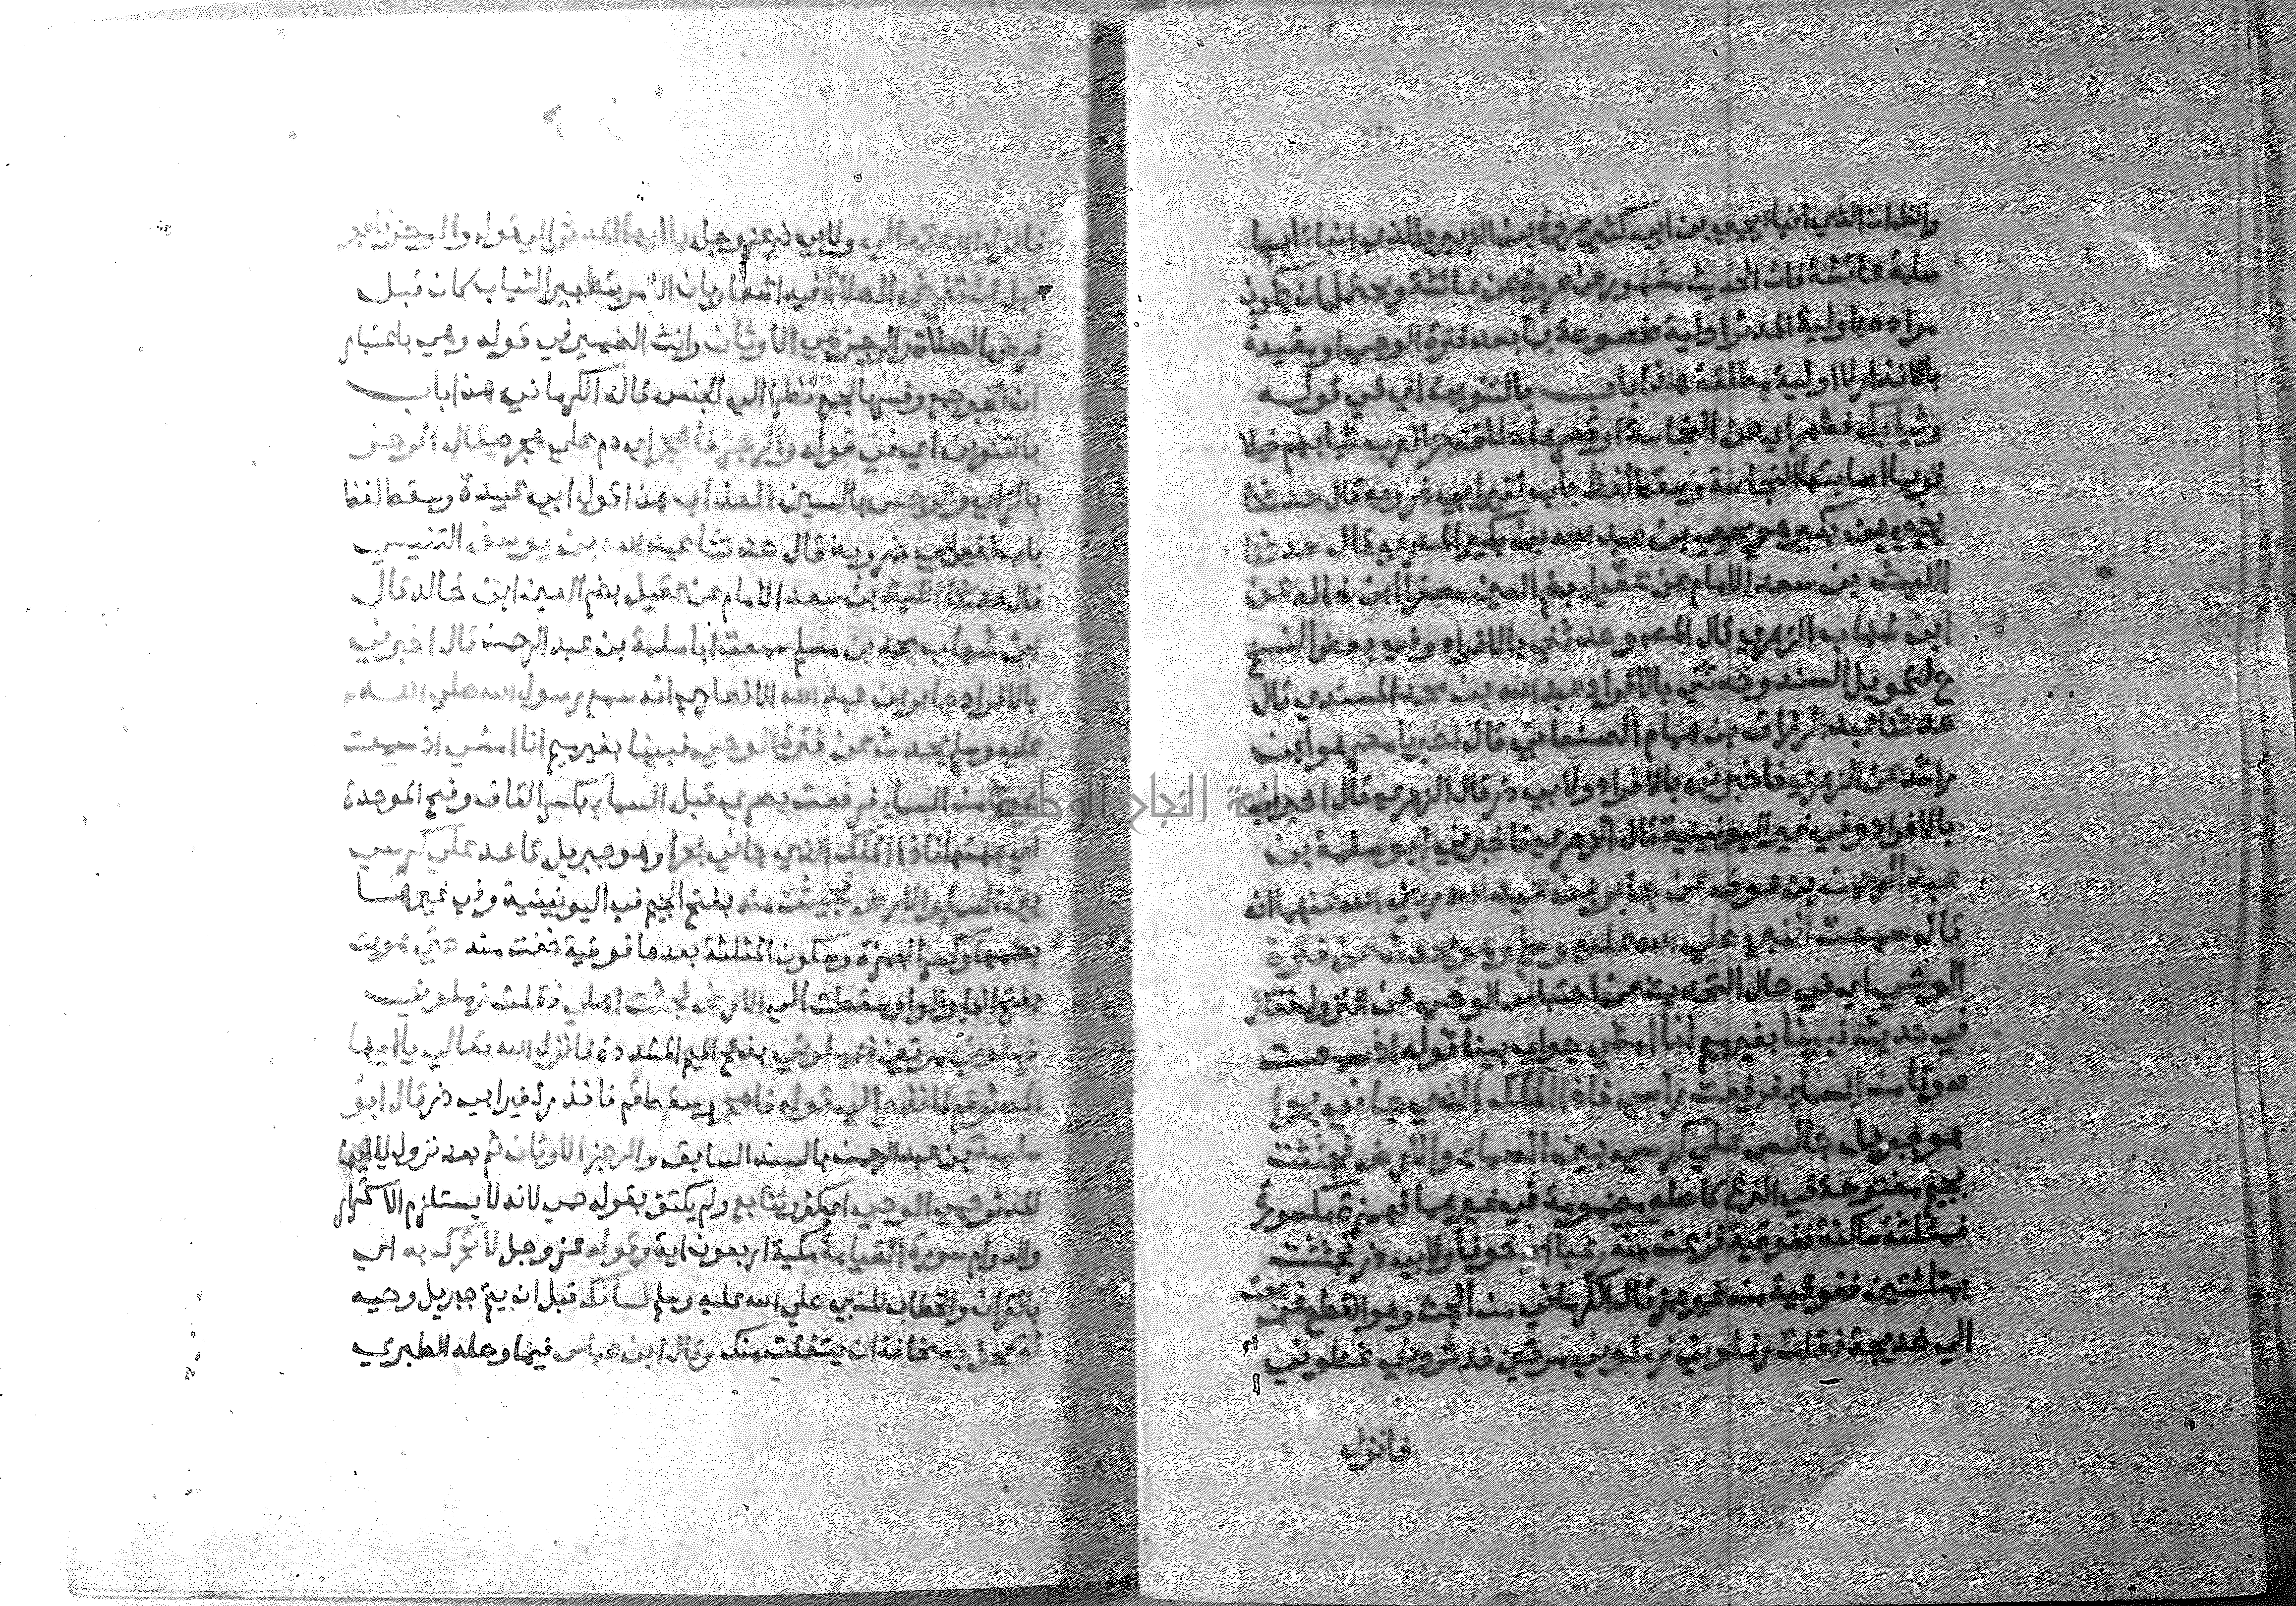 والظاهر ان الذي انباء يحيي بن ابي كثير عروة بن الزبير والذي انباء ابا
سلمة عائشة فان الحديث مشهور عن عروة عن عائشة ويحتمل ان يكون
مراده باولية المدثر اولية مخصوصة بما بعد فترة الوحي او مقيدة
بالانذار لا اولية مطلقة هذا باب بالتنوين اي في قوله
وثيابك فطهر اي عن النجاسة او قصرها خلاف جر العرب ثيابهم خيلا
فربما اصابتها النجاسة وسقط لفظ باب لغير ابي ذر وبه قال حدثنا
يحيي بن بكير هو يحيي بن عبد الله بن بكير المصري قال حدثنا
الليث بن سعد الامام عن عقيل بضم العين مصغرا ابن خالد عن
ابن شهاب الزهري قال المص وحدثني بالافراد وفي بعض النسخ
ح لتحويل السند وحدثني بالافراد عبد الله بن محمد المسندي قال
حدثنا عبد الرزاق بن همام الصنعاني قال اخبرنا معمر هو ابن
راشد عن الزهري فاخبرني بالافراد ولابي ذر قال الزهري قال اخبرني
بالافراد وفي غير اليونينية قال الزهري فاخبرني ابو سلمة بن
عبد الرحمن بن عوف عن جابر بن عبد الله رضي الله عنهما انه
قال سمعت النبي صلي الله عليه وسلم وهو يحدث عن فترة
الوحي اي في حال التحديث عن احتباس الوحي عن النزول فقال
في حديثه فبينا بغير ميم انا امشي جواب بينا قوله اذ سمعت
صوتا من السماء فرفعت راسي فاذا الملك الذي جاني بحرا
هو جبريل جالس علي كرسي بين السماء والارض فجئثت
بجيم مفتوحة في الفرع كاصله مضمومة في غيرهما فهمزة مكسورة
فمثلثة ساكنة ففوقية فزعت منه رعبا اي خوفا ولابي ذر فجثثت
بمثلثتين ففوقية من غير همز قال الكرماني من الجث وهو القطع فرجعت
الي خديجة فقلت زملوني زملوني مرتين فدثروني غطوني
فانزل
فانزل الله تعالي ولابي ذر عز وجل يا ايها المدثر الي قوله والرجز فاهجر
قبل ان تفرض الصلاة فيه اشعار بان الامر بتطهير الثياب كان قبل
فرض الصلاة والرجز هي الاوثان وانث الضمير في قوله وهي باعتبار
ان الخبر جمع وفسر بالجمع نظرا الي الجنس قاله الكرماني هذا باب
بالتنوين اي في قوله والرجز فاهجر اي دم علي هجره يقال الرجز
بالزاي والرجس بالسين العذاب هذا قول ابي عبيدة وسقط لفظ
باب لغير ابي ذر وبه قال حدثنا عبد الله بن يوسف التنيسي
قال حدثنا الليث بن سعد الامام عن عقيل بضم العين ابن خالد قال
ابن شهاب محمد بن مسلم سمعت ابا سلمة بن عبد الرحمن قال اخبرني
بالافراد جابر بن عبد الله الانصاري انه سمع رسول الله صلي الله
عليه وسلم يحدث عن فترة الوحي فبينا بغير ميم انا امشي اذ سمعت
صوتا من السماء فرفعت بصري قبل السماء بكسر القاف وفتح الموحدة
اي جهتها فاذا الملك الذي جاني بحرا وهو جبريل قاعد علي كرسي
بين السماء والارض فجيثت منه بفتح الجيم في اليونينية وفي غيرها
بضمها وكسر الهمزة وسكون المثلثة بعدها فوقية خفت منه حتي هويت
بفتح الها والواو سقطت الي الارض فجئت اهلي فقلت زملوني
زملوني مرتين فزملوني بفتح الميم المشددة فانزل الله تعالي يا ايها
المدثر قم فانذر الي قوله فاهجر سقط قم فانذر لغير ابي ذر قال ابو
سلمة بن عبد الرحمن بالسند السابق والرجز الاوثان ثم بعد نزول يا ايها
المدثر حمي الوحي اي كثر وتتابع ولم يكتف بقوله حمي لانه لا يستلزم الاستمرار
والدوام سورة القيامة مكية اربعون اية وقوله عز وجل لا تحرك به اي
بالقران والخطاب للنبي صلي الله عليه وسلم لسانك قبل ان يتم جبريل وحيه
لتعجل به مخافة ان يتفلت منك وقال ابن عباس فيما وصله الطبري
جامعة النجاح الوطنية